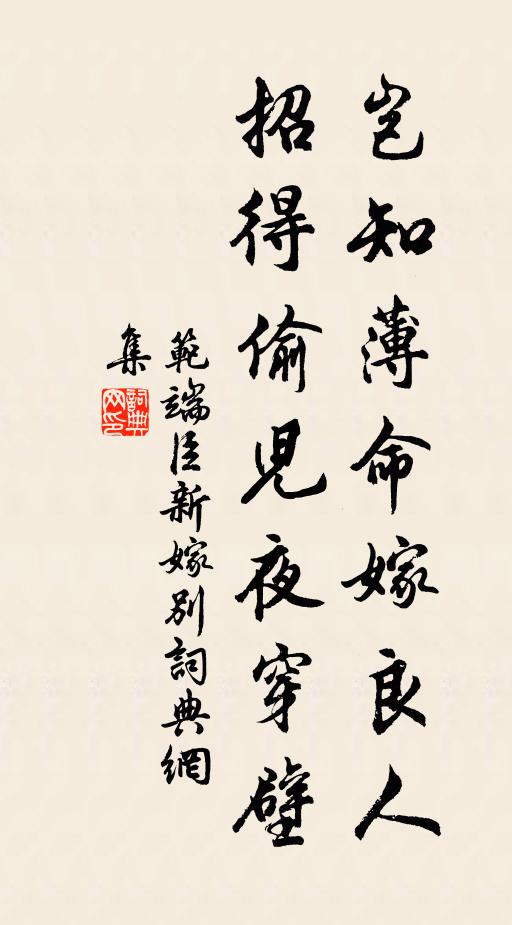 豈知薄命嫁良人
招得偷兒夜穿壁
範端臣新嫁別詞典網
集
詞典
网印